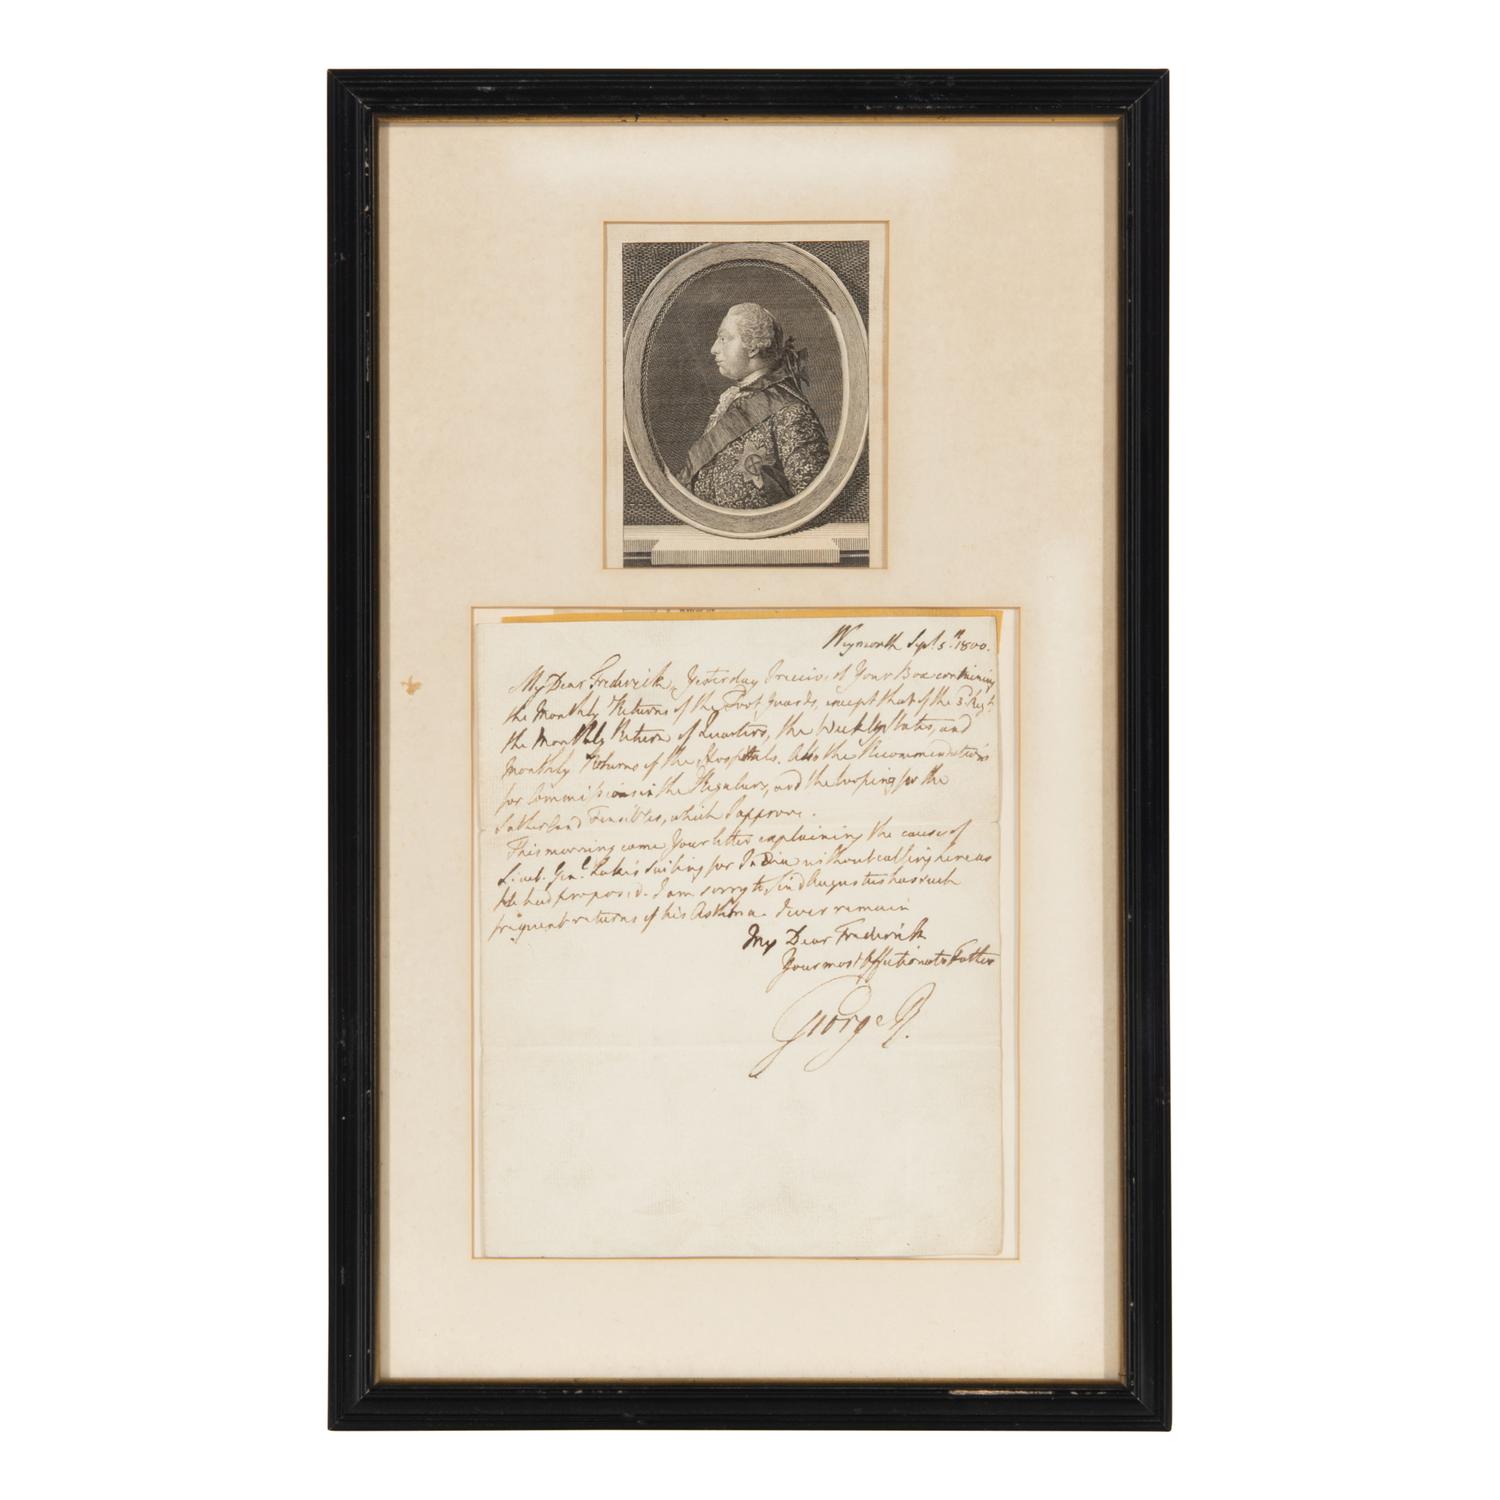 Weymouth Sept. 5th. 1800.
My Dear Frederick, Yesterday I receiv'd Your Box containing
the Monthly Returns of the Foot Guards, except that of the 3d. Regt.
the Monthly Return of Quarters, the Weekly States, and
Monthly Returns of the Hospitals. Also the Recommendations
for Commissions in the Regulars, and the
Sutherland Fencibles, which I approve.
This morning came Your letter explaining the cause of
Lieut. Genl. Lake's sailing for India without calling here as
He had proposed. I am sorry to find Augustus has such
frequent returns of his Asthma. I ever remain
My Dear Frederick
Your most Affectionate Father
George R.